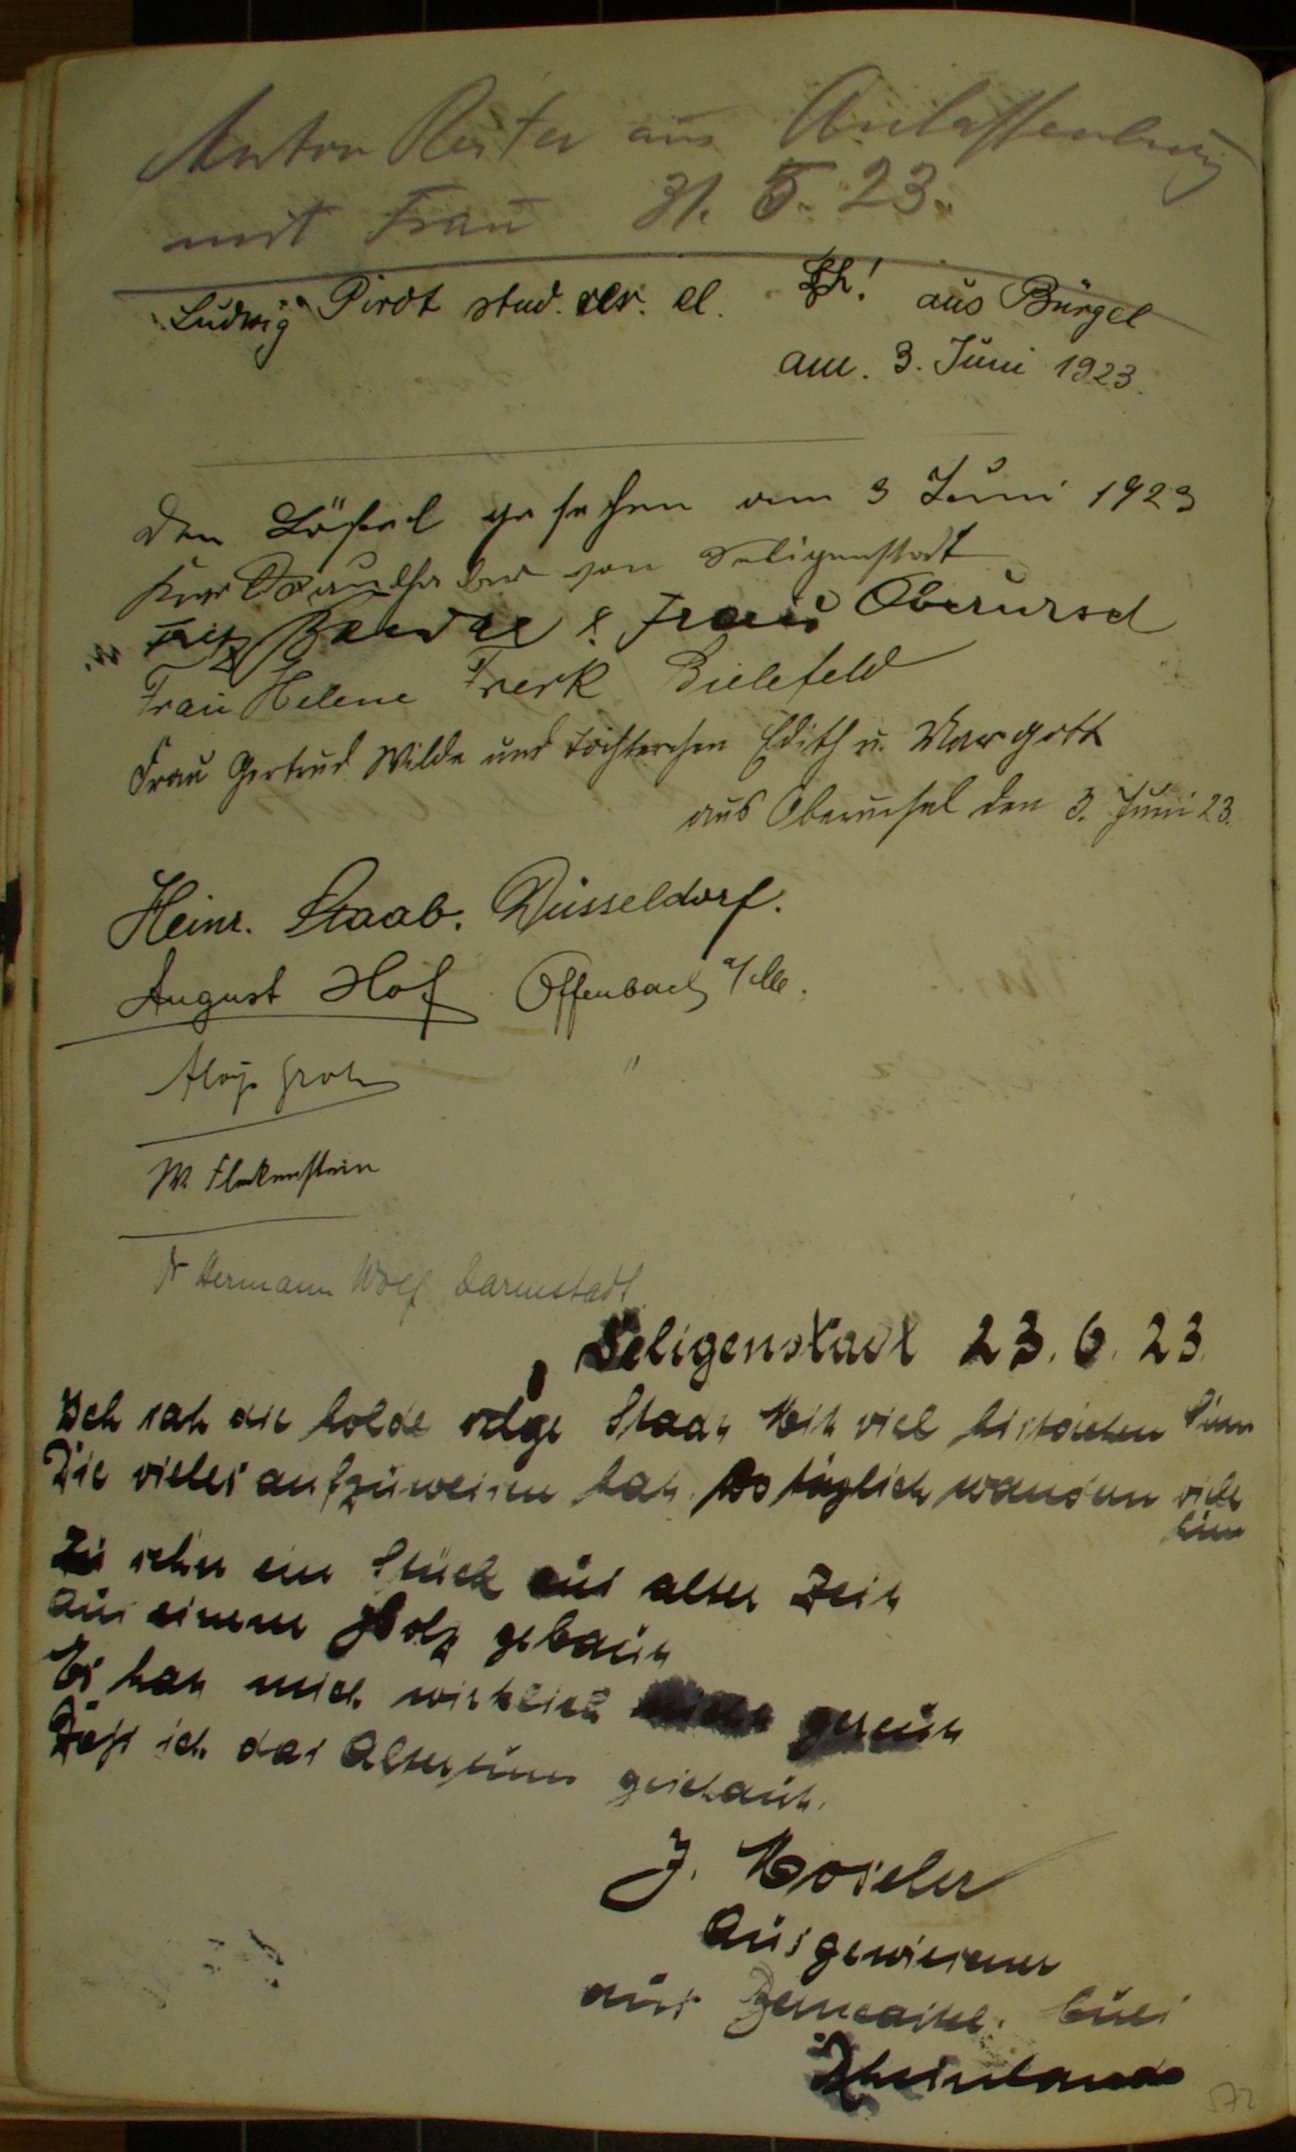 Anton Reiter aus Aschaffenburg
mit Frau 31. 5. 23.
Ludwig Pirot stud. rer. el. aus Bürgel
am. 3. Juni 1923.
Den Löffel gesehen am 3 Juni 1923
von Seligenstadt
Fritz & Frau Oberursel
Frau Helene Frerk Bielefeld
Frau Gertrud Wilde und Töchterchen Edith u. Margott
aus Oberursel den 3. Juni 23.
Heinr. Staab. Düsseldorf.
August Hof Offenbach a/M.
Aloys Groh "
W. Fleckenstein
Dr Hermann Wolf Darmstadt
Seligenstadt 23. 6. 23.
Ich sah die holde selge Stadt Mit viel historschen Sinn
Die vieles aufzuweisen hat. Wo täglich wandern viele
hin
Zu sehn ein Stück aus alter Zeit
Aus einem Holz gebaut
Es hat mich wirklich nicht gereut
Daß ich das Altertum geschaut.
J. Moseler
Ausgewiesener
aus Berncastel. Cues
Rheinland
572